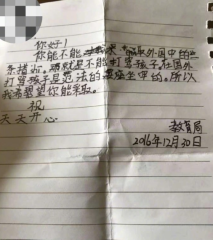 你好!
你能不能 取外国中的一
条措施,那就是不能打骂孩子,在国外
打骂孩子是违法的 坐牢的。所以
我希望望你能采取。
祝
天天开心
教育局
2016年12月30日